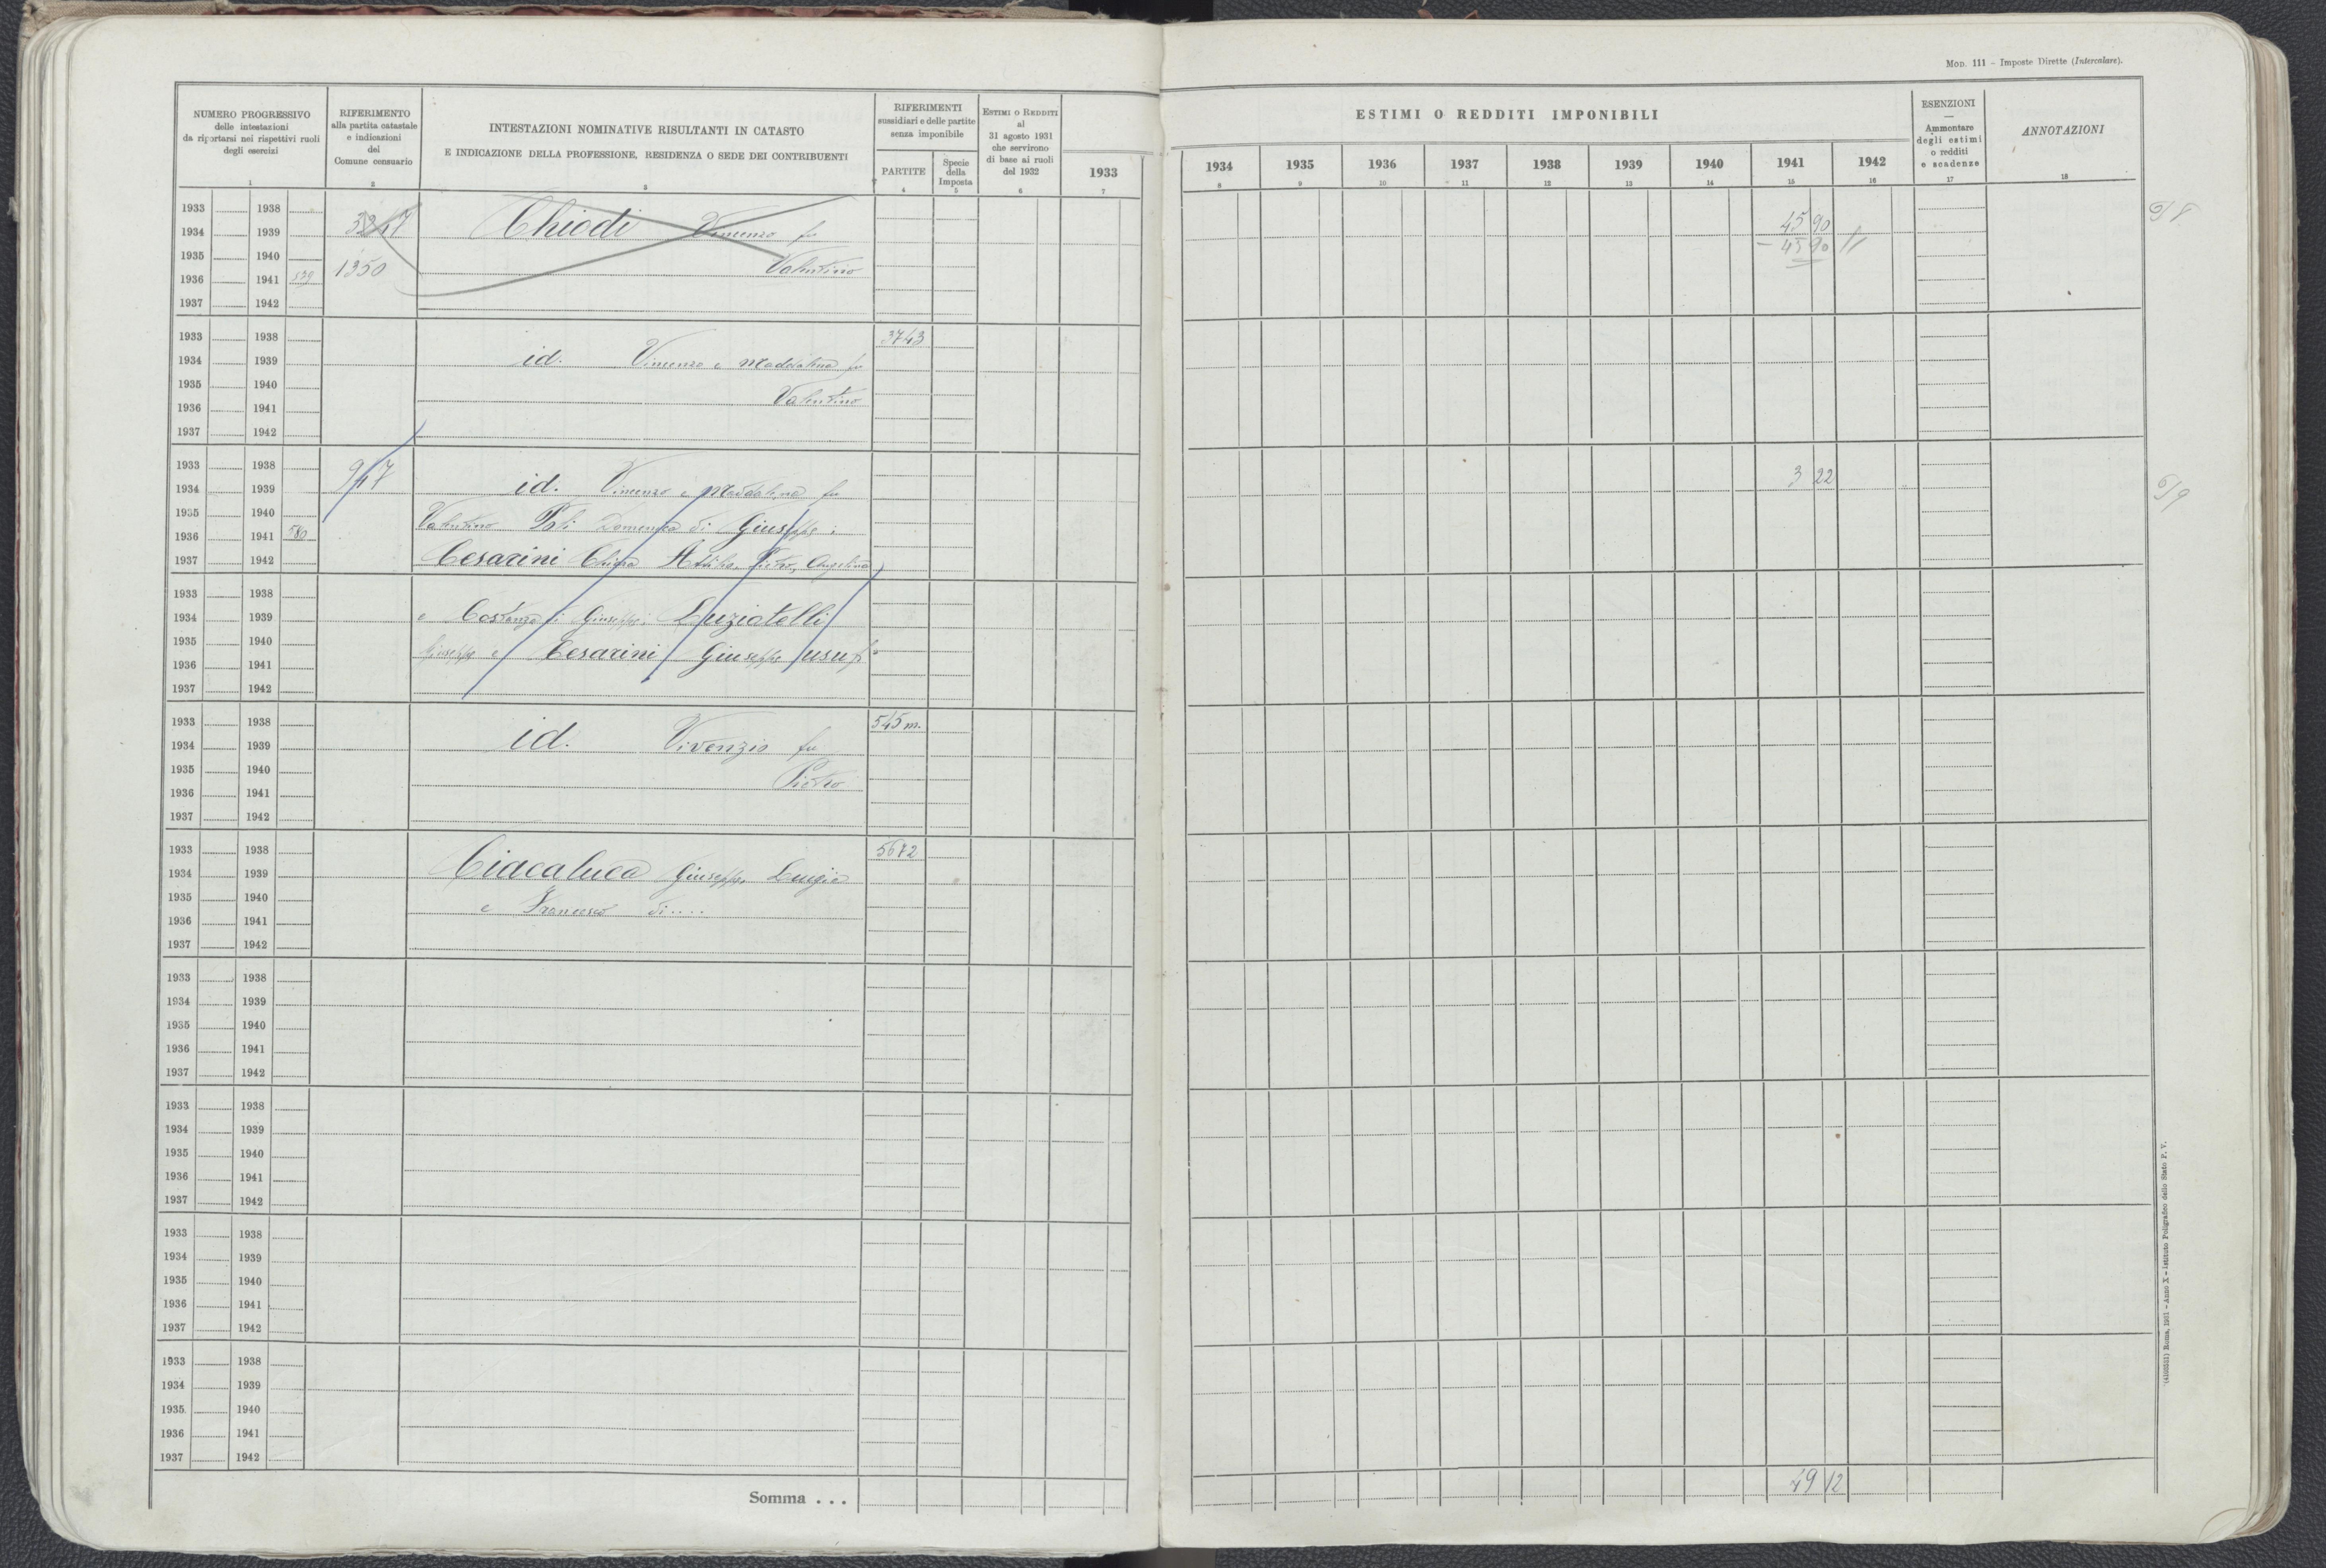 Mod. 111 – Imposte Dirette (Intercalare).
NUMERO PROGRESSIVO
delle intestazioni
da riportarsi nei rispettivi ruoli
degli esercizi
1
RIFERIMENTO
alla partita catastale
e indicazioni
del
Comune censuario
2
INTESTAZIONI NOMINATIVE RISULTANTI IN CATASTO
E INDICAZIONE DELLA PROFESSIONE, RESIDENZA O SEDE DEI CONTRIBUENTI
3
RIFERIMENTI
sussidiari e delle partite
senza imponibile
PARTITE
4
Specie
della
Imposta
5
Estimi o Redditi
al
31 agosto 1931
che servirono
di base ai ruoli
del 1932
6
1933
7
ESTIMI O REDDITI IMPONIBILI
1934 1935 1936 1937 1938 1939 1940 1941 1942
8 9 10 11 12 13 14 15 16
ESENZIONI
—
Ammontare
degli estimi
o redditi
e scadenze
17
ANNOTAZIONI
18
1933 1938
1934 1939 Chiodi Vincenzo fu 45 90
1935 1940 – 45 90
1936 1941 1350 Valentino
1937 1942
1933 1938 3743
1934 1939 id. Vincenzo e Maddalena fu
1935 1940
1936 1941 Valentino
1937 1942
1933 1938 947 3 22
1934 1939 id. Vincenzo e Maddalena fu
1935 1940 Valentino Domenica di Giuseppe;
1936 1941 580
1937 1942 Cesarini Chiara Attilio, Pietro, Angelina
1933 1938
1934 1939 e Costanza di Giuseppe; Luziatelli
1935 1940
1936 1941 Giuseppe e Cesarini Giuseppe usuf
1937 1942
1933 1938 545 m.
1934 1939 id. Vivenzio fu
1935 1940
1936 1941 Pietro
1937 1942
1933 1938 5672
1934 1939 Ciacaluca Giuseppe Luigia
1935 1940 e Francesco di....
1936 1941
1937 1942
1933 1938
1934 1939
1935 1940
1936 1941
1937 1942
1933 1938
1934 1939
1935 1940
1936 1941
1937 1942
1933 1938
1934 1939
1935 1940
1936 1941
1937 1942
1933 1938
1934 1939
1935 1940
1936 1941
1937 1942
Somma . . . 49 12
Roma, 1931 – Anno X – Istituto Poligrafico dello Stato P. V.